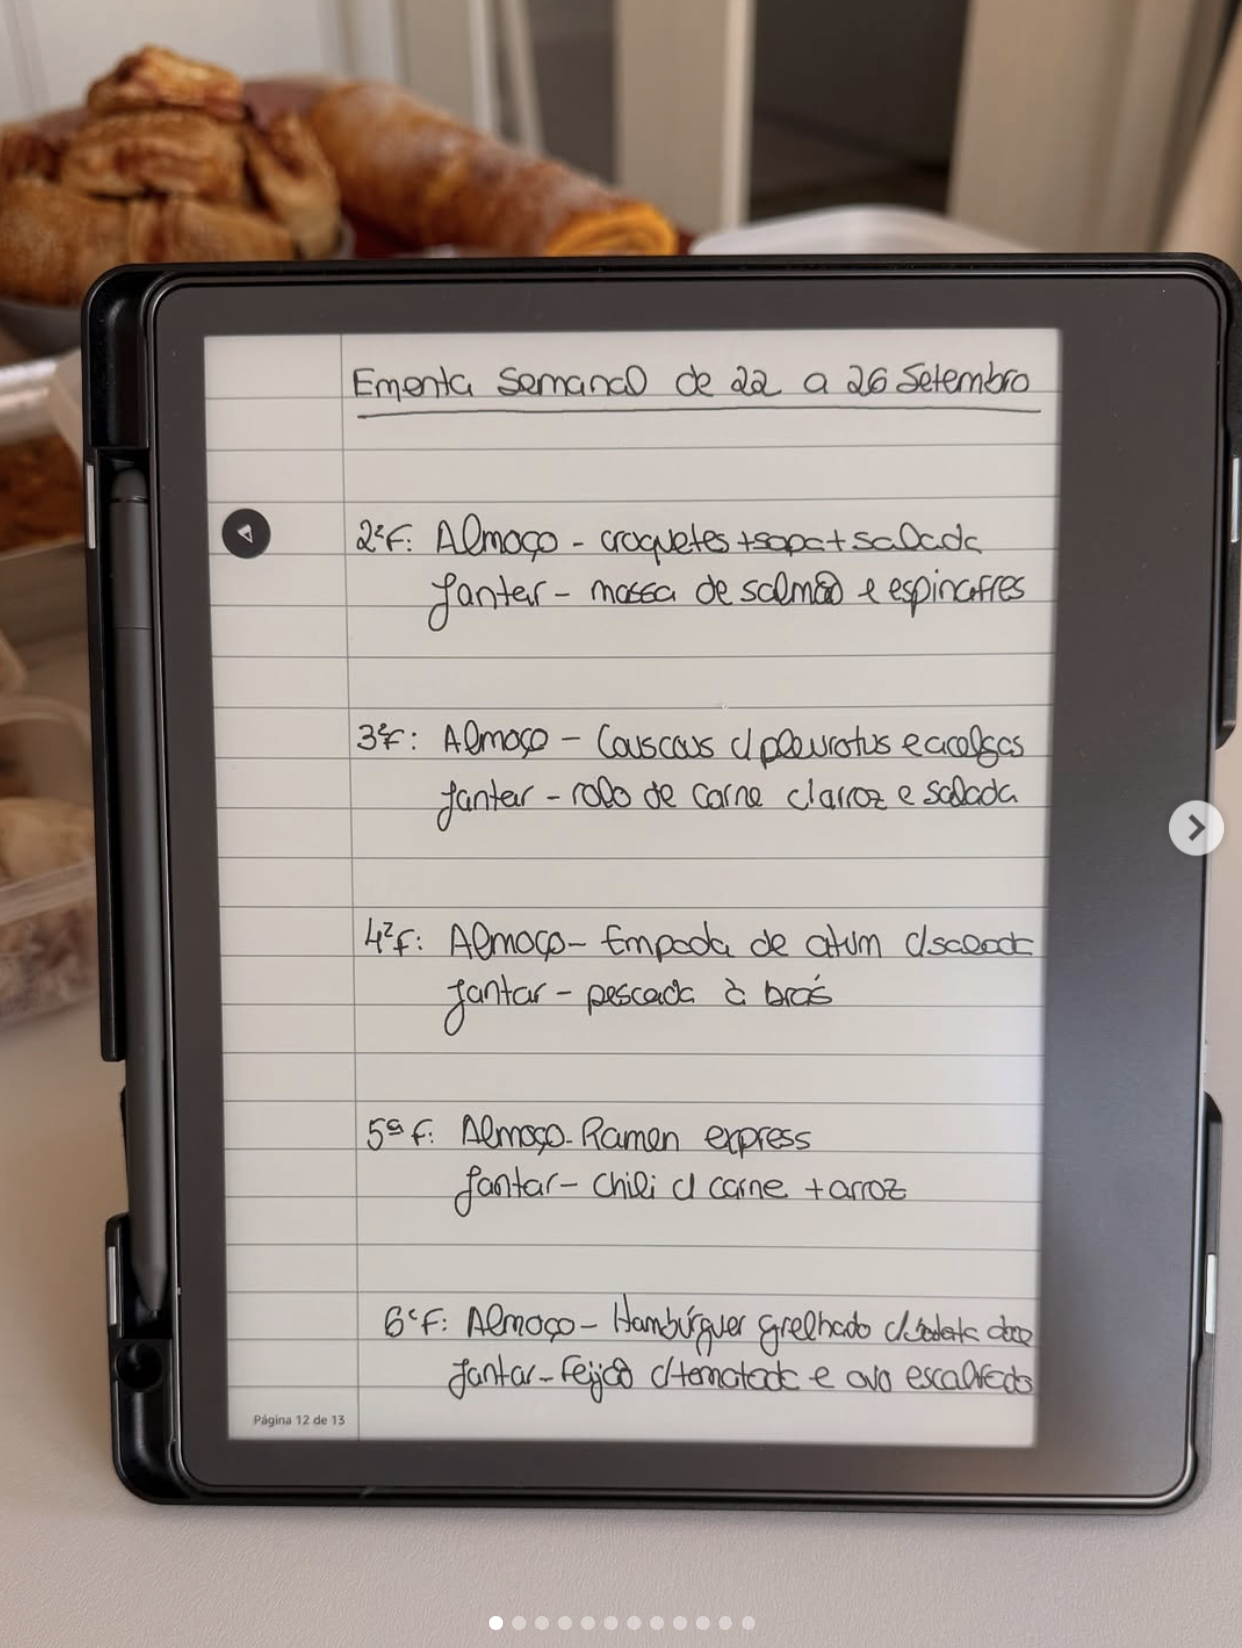 Ementa Semanal de 22 a 26 Setembro
2ªf: Almoço - croquetes + sopa + salada
Jantar - massa de salmão e espinafres
3ªf: Almoço - Couscous c/ pleurotus e acelgas
Jantar - rolo de carne c/ arroz e salada
4ªf: Almoço - Empada de atum c/ salada
Jantar - pescada à brás
5ª f: Almoço - Ramen express
Jantar - chili c/ carne + arroz
6ªf: Almoço - Hambúrguer grelhado c/ batata doce
Jantar - Feijão c/ tomatada e ovo escalfado
Página 12 de 13